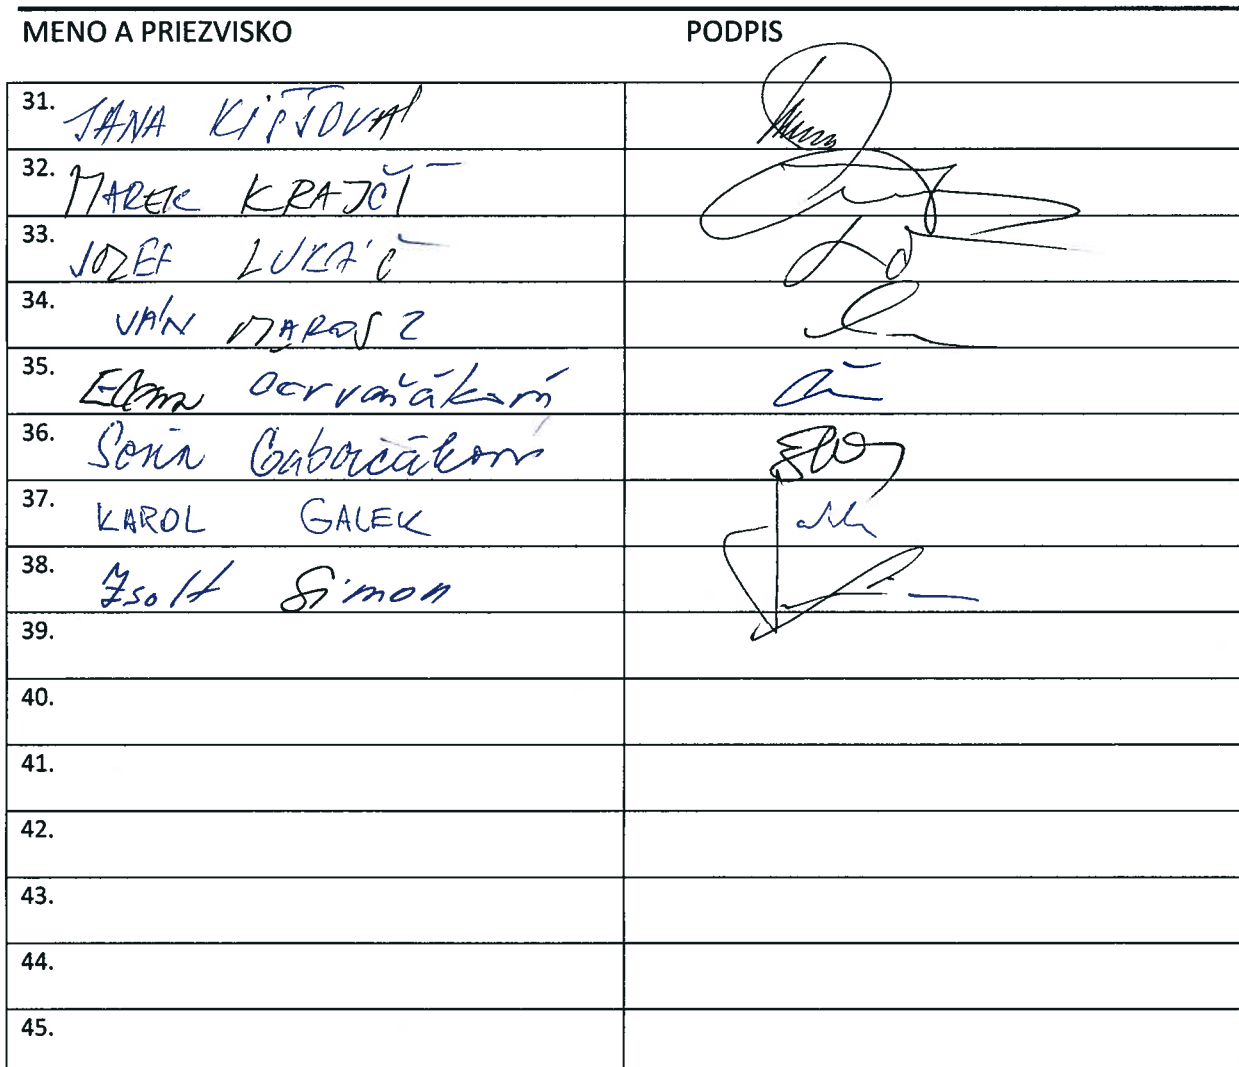 MENO A PRIEZVISKO PODPIS
31. JANA KIŠŠOVÁ
32. MAREK KRAJČÍ
33. JOZEF LUKÁČ
34. VÁŇ MAROSZ
35.
36. Soňa Gaborčáková
37. KAROL GALEK
38. Zsolt Simon
39.
40.
41.
42.
43.
44.
45.